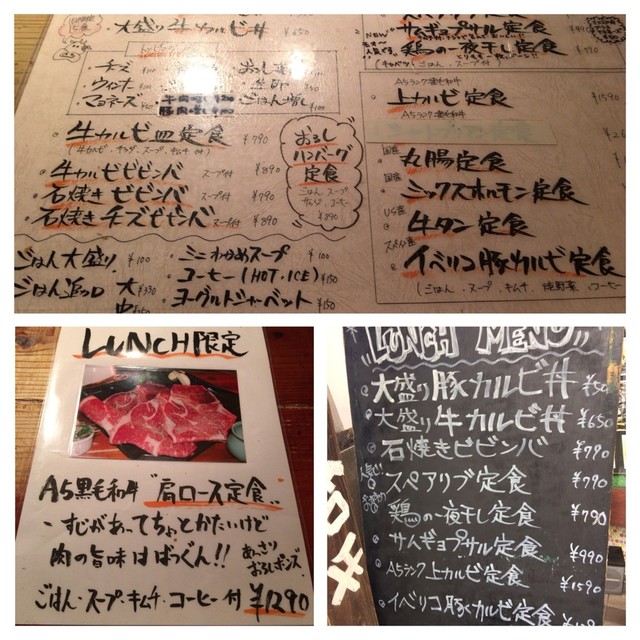 大盛り牛カルビ丼 ¥650
・チーズ
・ウィンナー
・マヨネーズ
・ごはん増し
牛カルビ皿定食 ¥790
牛カルビビビンバ スープ付 ¥890
石焼きビビンバ スープ付 ¥790
石焼きチーズビビンバ スープ付 ¥890
おろし
ハンバーグ
定食
ごはん・スープ
¥890
ごはん大盛り ¥100
ごはん追加 大 ¥350
・ミニわかめスープ ¥100
・コーヒー(HOT・ICE) ¥150
・ヨーグルトシャーベット ¥150
NEW
サムギョプサル定食
鶏の一夜干し定食 ¥790
A5ランク黒毛和牛
上カルビ定食 ¥1590
A5ランク黒毛和牛
国産 丸腸定食
国産 ミックスホルモン定食
US産 牛タン定食
スペイン産 イベリコ豚カルビ定食
(ごはん・スープ・キムチ・焼野菜・コーヒー
LUNCH限定
A5黒毛和牛 "肩ロース定食"
・すじがあってちょとかたいけど
肉の旨味はばっくん!!
あっさり
おろしポンズ
ごはん・スープ・キムチ・コーヒー付 ¥1290
"LUNCH MENU"
大盛り豚カルビ丼
大盛り牛カルビ丼 ¥650
石焼きビビンバ ¥790
人気No.1
スペアリブ定食 ¥790
鶏の一夜干し定食 ¥790
サムギョプサル定食 ¥990
A5ランク上カルビ定食 ¥1590
イベリコ豚カルビ定食